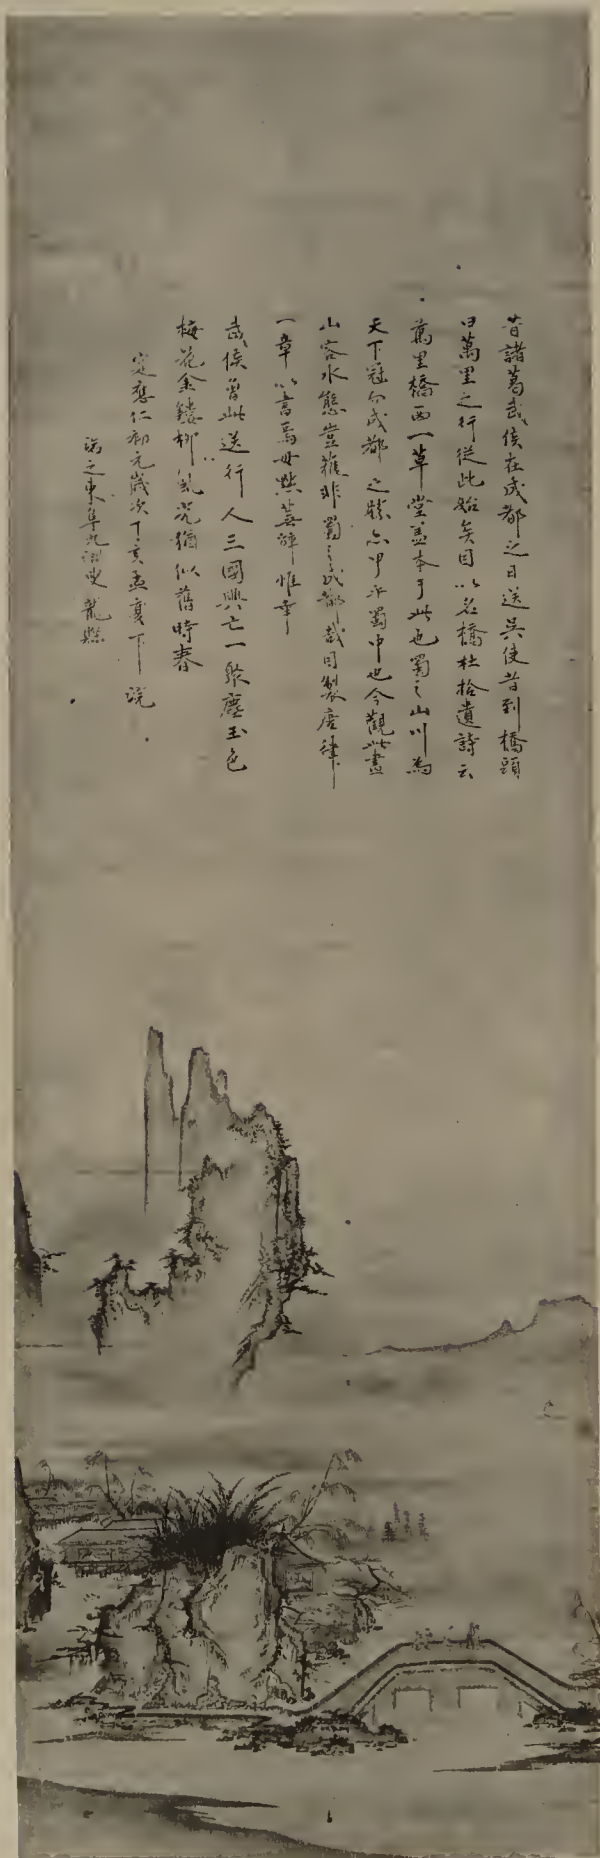 昔諸葛武侯在成都之日送吳使昔到橋頭
曰萬里之行從此始矣因以名橋杜拾遺詩云
萬里橋西一草堂蓋本于此也蜀之山川為
天下冠而成都之勝亦甲于蜀中也今觀此畫
山容水態豈雅非蜀之成都哉因製唐律
一章以書焉毋點蕪辭惟幸
武侯曾此送行人三國興亡一聚塵玉色
梅花金縷柳風光猶似舊時春
應仁初元歲次丁亥孟夏下浣
之東阜 叟龍